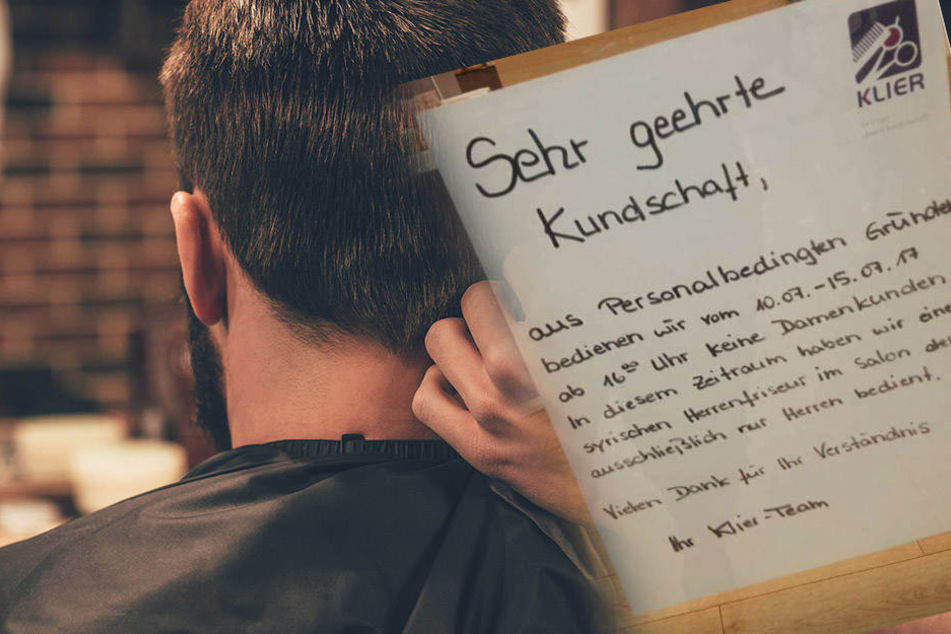 KLIER
Sehr geehrte
Kundschaft,
aus Personalbedingten Gründen
bedienen wir vom 10.07.-15.07.17
ab 16⁰⁰ Uhr keine Damenkunden.
In diesem Zeitraum haben wir
syrischen Herrenfriseur im Salon der
ausschließlich nur Herren bedient.
Vielen Dank für Ihr Verständnis
Ihr Klier-Team